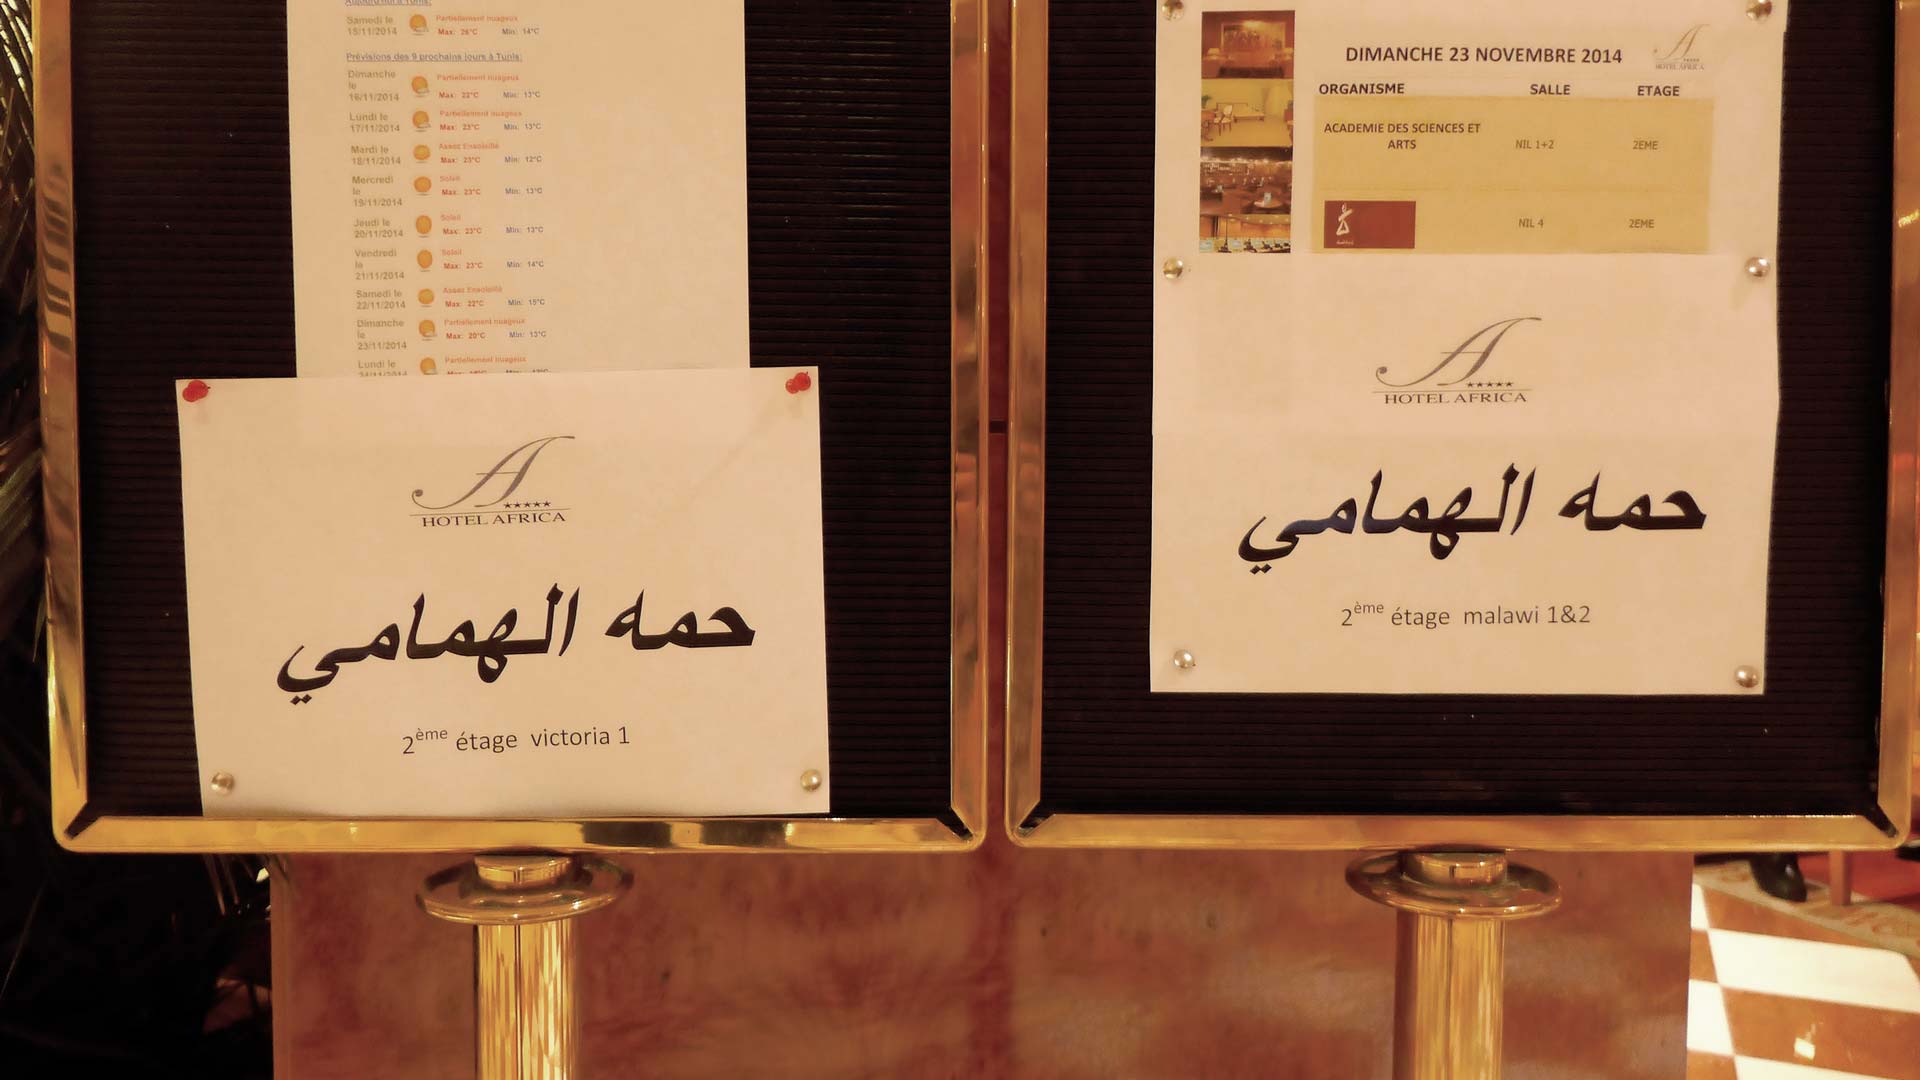 Aujourd'hui à Tunis:
Samedi le
15/11/2014
Partiellement nuageux
Max: 26°C Min: 14°C
Prévisions des 9 prochains jours à Tunis:
Dimanche
le
16/11/2014
Partiellement nuageux
Max: 22°C Min: 13°C
Lundi le
17/11/2014
Partiellement nuageux
Max: 23°C Min: 13°C
Mardi le
18/11/2014
Assez Ensoleillé
Max: 23°C Min: 12°C
Mercredi
le
19/11/2014
Soleil
Max: 23°C Min: 13°C
Jeudi le
20/11/2014
Soleil
Max: 23°C Min: 13°C
Vendredi
le
21/11/2014
Soleil
Max: 23°C Min: 14°C
Samedi le
22/11/2014
Assez Ensoleillé
Max: 22°C Min: 15°C
Dimanche
le
23/11/2014
Partiellement nuageux
Max: 20°C Min: 13°C
Lundi le
24/11/2014
Partiellement nuageux
HOTEL AFRICA
حمه الهمامي
2ème étage victoria 1
DIMANCHE 23 NOVEMBRE 2014
HOTEL AFRICA
ORGANISME SALLE ETAGE
ACADEMIE DES SCIENCES ET
ARTS NIL 1+2 2EME
NIL 4 2EME
HOTEL AFRICA
حمه الهمامي
2ème étage malawi 1&2